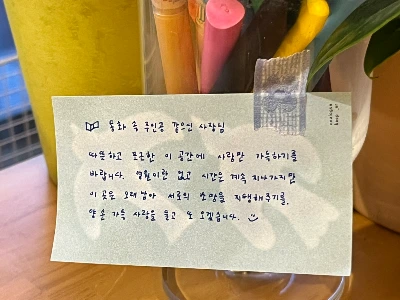 동화 속 주인공 같으신 사장님
따뜻하고 포근한 이 공간에 사랑만 가득하기를
바랍니다. 영원이란 없고 시간은 계속 지나가지만
이 곳은 오래 남아 서로의 소망을 지탱해주기를.
양 손 가득 사랑을 들고 또 오겠습니다.